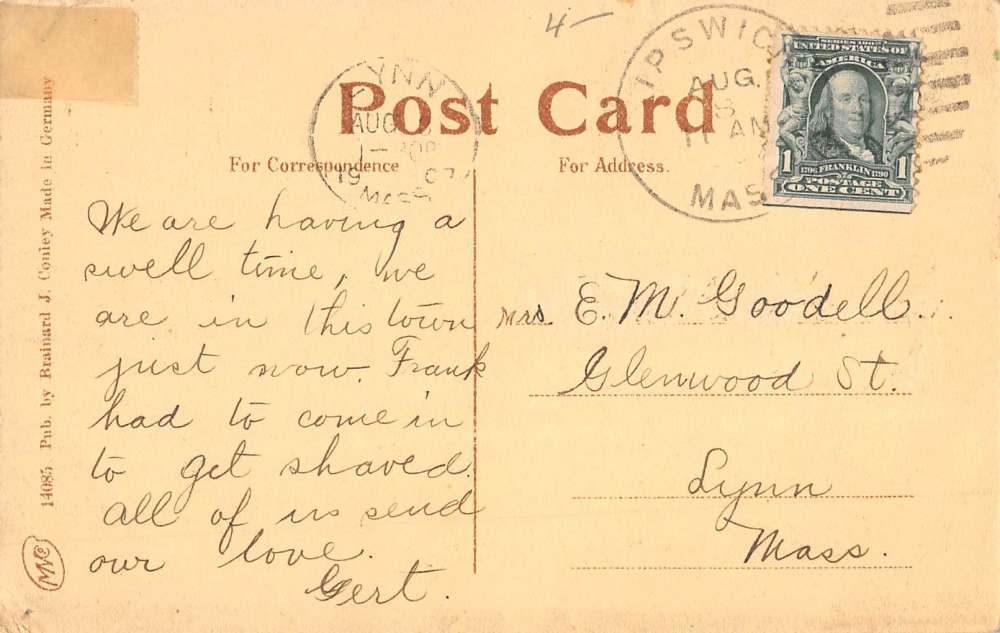 4—
Post Card
For Correspondence
For Address.
LYNN
AUG
1907
MASS
IPSWICH
AUG.
8
11 AM
MASS
SERIES 1902
UNITED STATES OF
AMERICA
1 1
1706 FRANKLIN 1790
POSTAGE
ONE CENT
We are having a
swell time, we
are in this town
just now. Frank
had to come in
to get shaved.
all of us send
our love.
Gert.
Mrs. E. M. Goodell.
Glenwood St.
Lynn
Mass.
14085 Pub. by Brainard J. Conley Made in Germany